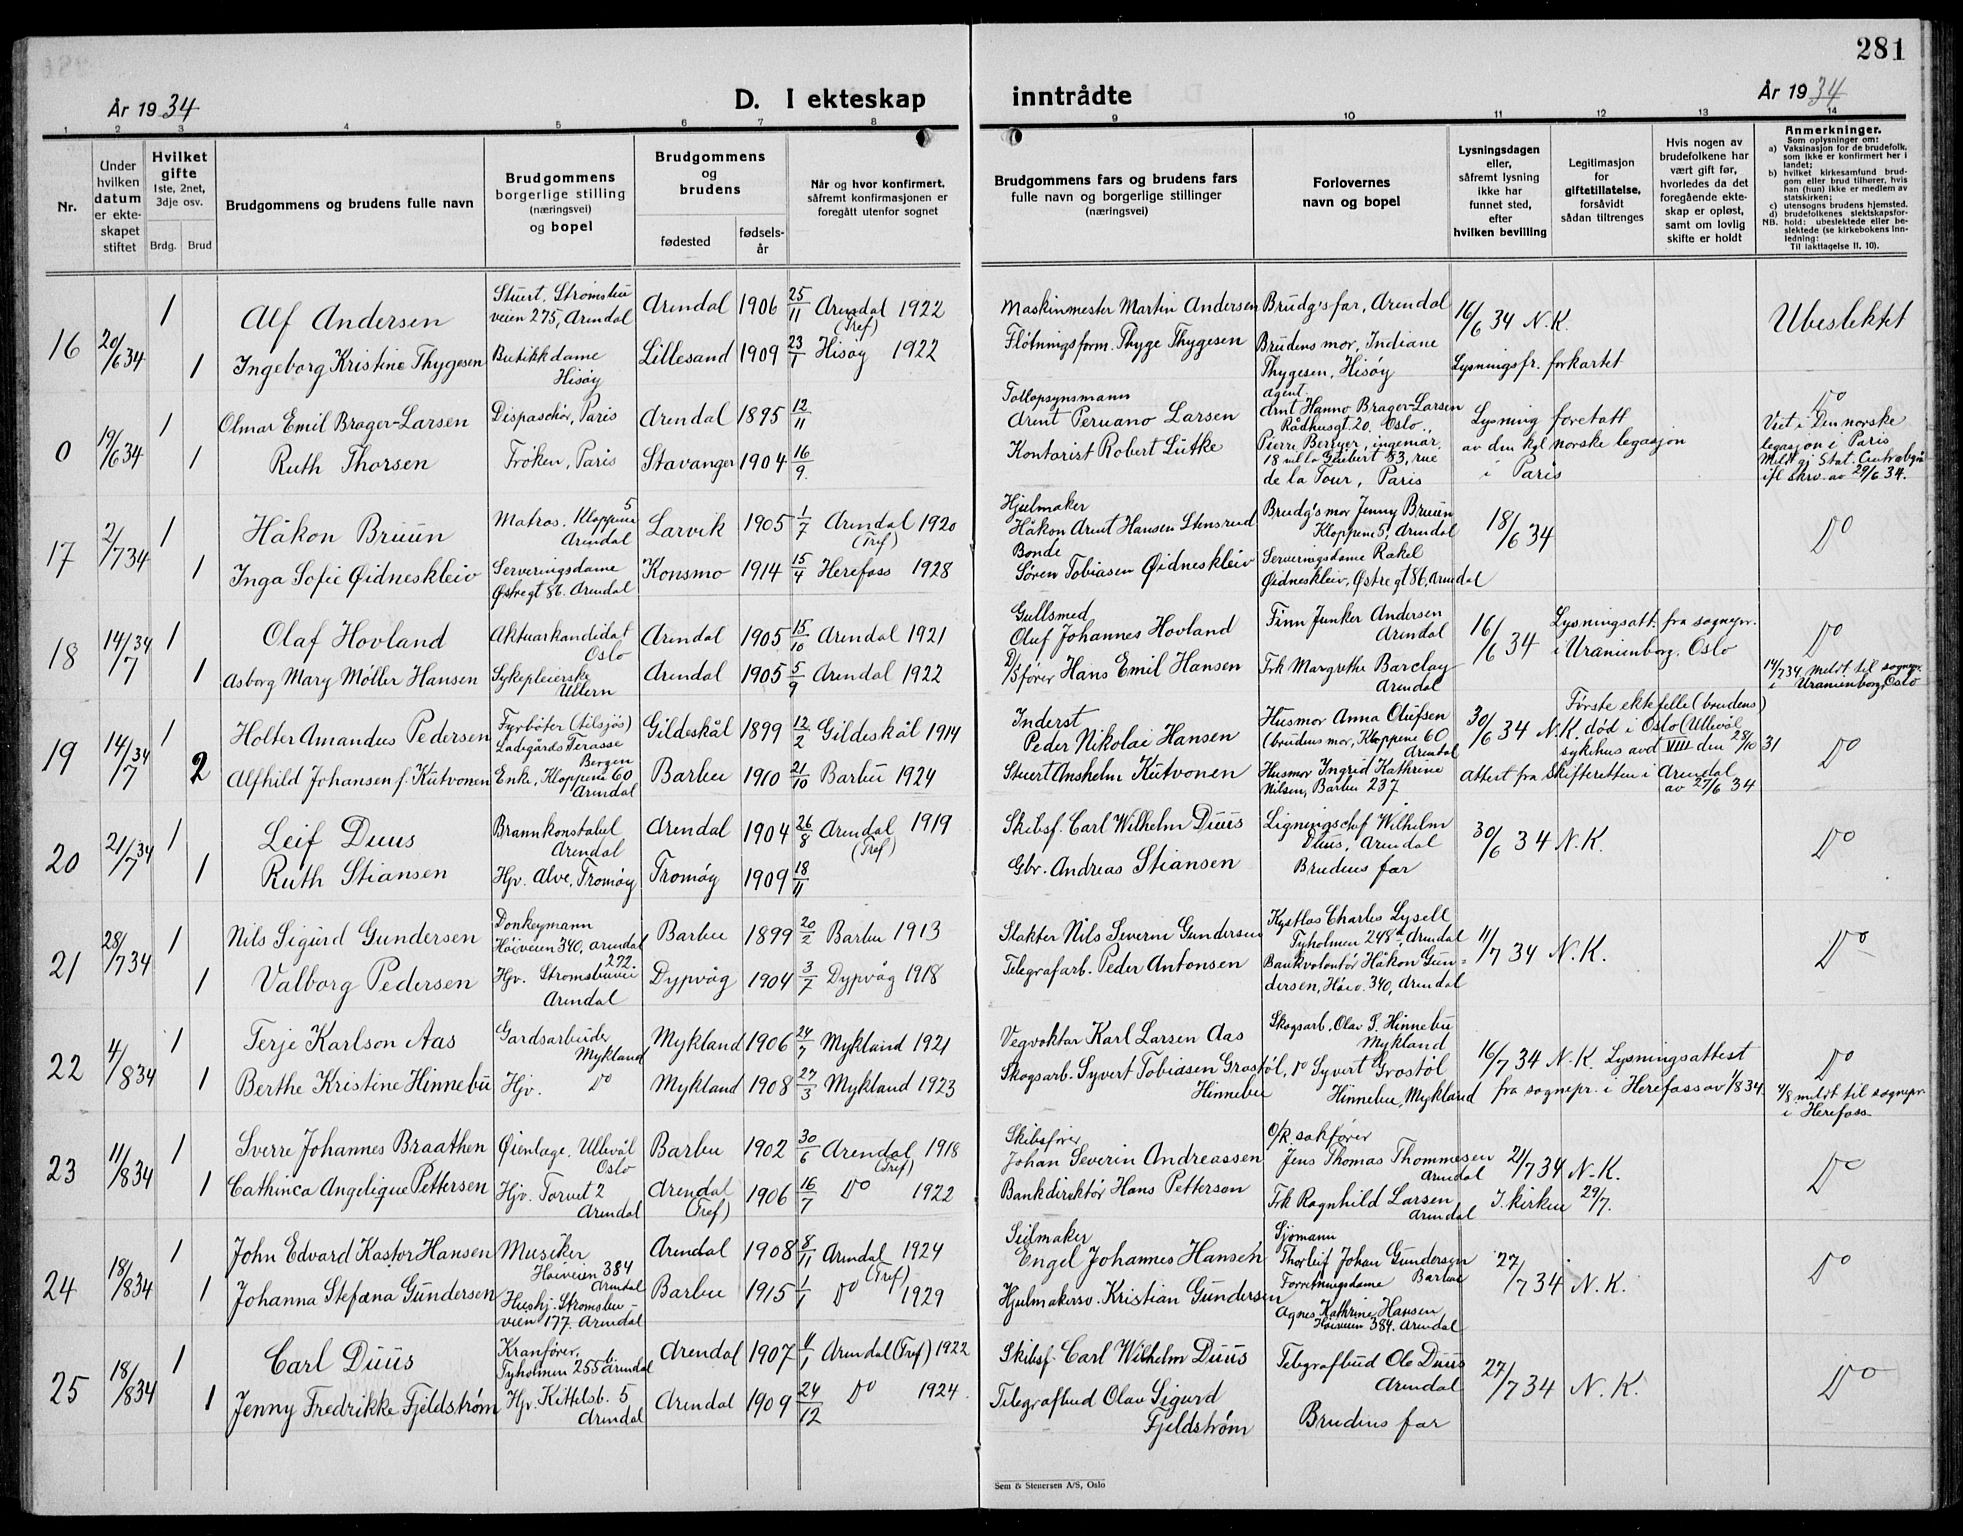 281
År 1934
D. I ekteskap
inntrådte
År 1934
1 2 3 4 5 6 7 8 9 10 11 12 13 14
Nr.
Under hvilken datum er ekteskapet stiftet
Hvilket gifte
1ste, 2net, 3dje osv.
Brdg. Brud
Brudgommens og brudens fulle navn
Brudgommens borgerlige stilling (næringsvei) og bopel
Brudgommens og brudens
fødested
fødselsår
Når og hvor konfirmert, såfremt konfirmasjonen er foregått utenfor sognet
Brudgommens fars og brudens fars fulle navn og borgerlige stillinger (næringsvei)
Forlovernes navn og bopel
Lysningsdagen eller, såfremt lysning ikke har funnet sted, efter hvilken bevilling
Legitimasjon for giftetillatelse, forsåvidt sådan tiltrenges
Hvis nogen av brudefolkene har vært gift før, hvorledes da det foregående ekteskap er opløst, samt om lovlig skifte er holdt
Anmerkninger.
Som oplysninger om:
a) Vaksinasjon for de brudefolk, som ikke er konfirmert her i landet;
b) hvilket kirkesamfund brudgom eller brud tilhører, hvis han (hun) ikke er medlem av statskirken;
c) utensogns brudens hjemsted.
d) brudefolkenes slektskapsforhold: ubeslektede eller beslektede (se kirkebokens innledning:
NB.
Til iakttagelse II. 10).
16 20/6 34 1 Alf Andersen Stuert, Strømsbuveien 275, Arendal Arendal 1906 25/11 Arendal (Tref) 1922 Maskinmester Martin Andersen Brudg's far, Arendal 16/6 34 N.K. Ubeslektet
1 Ingeborg Kristine Thygesen Butikkdame Hisøy Lillesand 1909 23/1 Hisøy 1922 Fløtningsform. Thyge Thygesen Brudens mor, Indiane Thygesen, Hisøy Lysningsfr. forkortet
0 19/6 34 1 Olmar Emil Brager-Larsen Dispaschør, Paris Arendal 1895 12/11 Tollopsynsmann Arnt Peruano Larsen agent. Arnt Hanno Brager-Larsen Rådhusgt. 20, Oslo. Lysning foretatt av den kgl norske legasjon i Paris Do
1 Ruth Thorsen Frøken, Paris Stavanger 1904 16/9 Kontorist Robert Lütke Pierre Bergyer, ingeniør, 18 villa Guibert 83, rue de la Tour, Paris Viet i Den norske legasjon i Paris Meldt gj. Stat. Centralbyrå ifl. skrv. av 29/6 34.
17 2/7 34 1 Håkon Bruun Matros. Kloppene 5 Arendal Larvik 1905 1/7 Arendal (Tref) 1920 Hjulmaker Håkon Arnt Hansen Stensrud Brudg's mor Jenny Bruun Kloppene 5, Arendal 18/6 34 Do
1 Inga Sofie Øidneskleiv Serveringsdame Østregt 86. Arendal Konsmo 1914 15/4 Herefoss 1928 Bonde Søren Tobiasen Øidneskleiv Serveringsdame Rakel Øidneskleiv, Østregt 86, Arendal
18 14/7 34 1 Olaf Hovland Aktuarkandidat Oslo Arendal 1905 15/10 Arendal 1921 Gullsmed Oluf Johannes Hovland Finn Junker Andersen Arendal 16/6 34 Lysningsatt. fra sognepr. i Uranienborg, Oslo Do
1 Asborg Mary Møller Hansen Sykepleierske Ullern Arendal 1905 5/9 Arendal 1922 D/Sfører Hans Emil Hansen Frk Margrethe Barclay Arendal 14/7 34 meldt til sognepr. i Uranienborg, Oslo
19 14/7 34 1 Holter Amandus Pedersen Fyrbøter (tilsjøs) Ladegårds Terasse Bergen Gildeskål 1899 12/2 Gildeskål 1914 Inderst Peder Nikolai Hansen Husmor Anna Olufsen (brudens mor, Kloppene 60 Arendal 30/6 34 N.K. Første ektefelle (brudens) død i Oslo (Ullevål sykehus avd VIII den 28/10 31 Do
2 Alfhild Johansen f. Kutvonen Enke, Kloppene 60 Arendal Barbu 1910 21/10 Barbu 1924 Stuert Anshelm Kutvonen Husmor Ingrid Kathrine Nilsen, Barbu 237 attest fra skifteretten i Arendal av 27/6 34
20 21/7 34 1 Leif Duus Brannkonstabel Arendal Arendal 1904 26/8 Arendal (Tref) 1919 Skibsf. Carl Wilhelm Duus Ligningschef Wilhelm Duus, Arendal 30/6 34 N.K. Do
1 Ruth Stiansen Hjv. Alve, Tromøy Tromøy 1909 18/11 Gbr. Andreas Stiansen Brudens far
21 28/7 34 1 Nils Sigurd Gundersen Donkeymann Høiveien 340, Arendal Barbu 1899 20/2 Barbu 1913 Slakter Nils Severin Gundersen Kystlos Charles Lysell Tyholmen 248d, Arendal 11/7 34 N.K. Do
1 Valborg Pedersen Hjv. Strømsbuvei 272. Arendal Dypvåg 1904 3/7 Dypvåg 1918 Telegrafarb. Peder Antonsen Bankvolontør Håkon Gundersen, Høiv. 340, Arendal
22 4/8 34 1 Terje Karlson Aas Gardsarbeider Mykland Mykland 1906 24/7 Mykland 1921 Vegvoktar Karl Larsen Aas Skogsarb. Olav S. Hinnebu Mykland 16/7 34 N.K. Lysningsattest fra sognepr. i Herefoss av 1/8 34 Do
1 Berthe Kristine Hinnebu Hjv. Do Mykland 1908 27/3 Mykland 1923 Skogsarb. Syvert Tobiasen Grostøl, Hinnebu Do Syvert Grostøl Hinnebu, Mykland 4/8 meldt til sognepr. i Herefoss
23 11/8 34 1 Sverre Johannes Braathen Øienlæge, Ullevål Oslo Barbu 1902 30/6 Arendal (Tref) 1918 Skibsfører Johan Severin Andreassen O/R. sakfører Jens Thomas Thommesen Arendal 21/7 34 N.K. Do
1 Cathinca Angelique Pettersen Hjv. Torvet 2 Arendal Arendal (Tref) 1906 16/7 Do 1922 Bankdirektør Hans Petterson Frk Ragnhild Larsen Arendal I kirken 29/7.
24 18/8 34 1 John Edvard Kastor Hansen Musiker Høiveien 384 Arendal Arendal 1908 8/11 Arendal (Tref) 1924 Seilmaker Engel Johannes Hansen Sjømann Thorleif Johan Gundersen Barbu 27/7 34 N.K. Do
1 Johanna Stefana Gundersen Hushj. Strømsbuveien 177. Arendal Barbu 1915 1/1 Do 1929 Hjulmakersv. Kristian Gundersen Forretningsdame Agnes Kathrine Hansen Høiveien 384. Arendal
25 18/8 34 1 Carl Duus Kranfører, Tyholmen 255 Arendal Arendal 1907 11/1 Arendal (Tref) 1922 Skibsf. Carl Wilhelm Duus Telegrafbud Ole Duus Arendal 27/7 34 N.K. Do
1 Jenny Fredrikke Fjeldstrøm Hjv. Kittelsb. 5 Arendal Arendal 1909 24/12 Do 1924. Telegrafbud Olav Sigurd Fjeldstrøm Brudens far
Sem & Stenersen A/S, Oslo